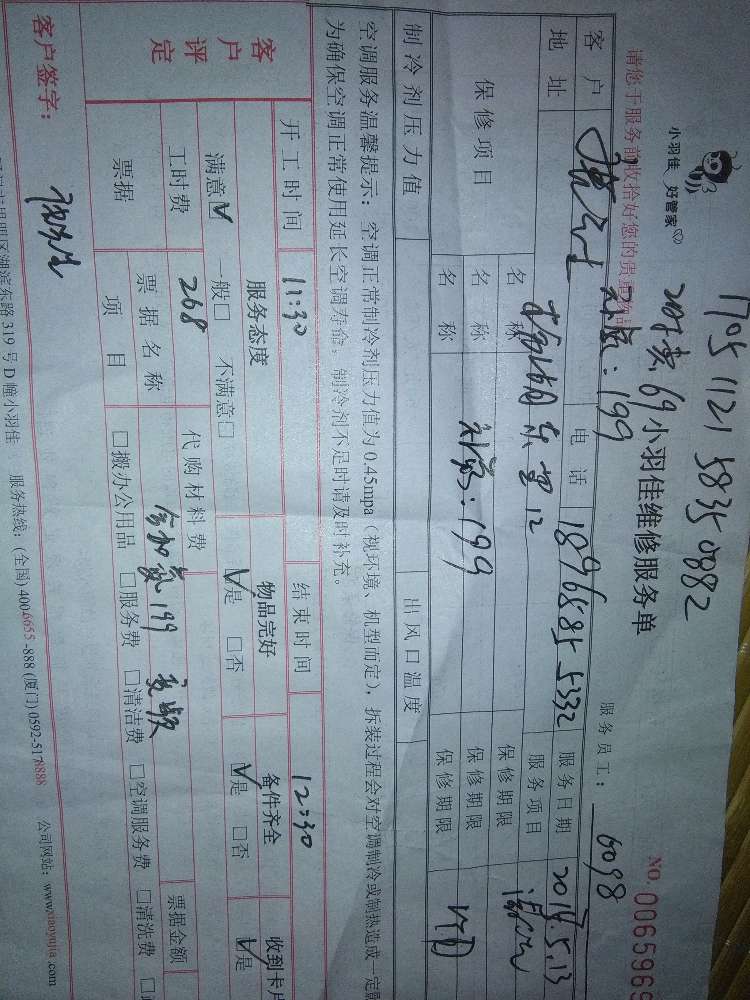 1705 1121 5835 0882
69
小羽佳 好管家
小羽佳维修服务单
NO.0065969
请您于服务前收拾好您的贵重物品
:199
服务员工: 6098
客户
电话 18965855332 服务日期 5.13
地址
服务项目
保修项目
名称
保修期限
名称 :199 保修期限
名称
保修期限
制冷剂压力值
出风口温度
空调服务温馨提示:空调正常制冷剂压力值为0.45mpa(视环境、机型而定),拆装过程会对空调制冷或制热造成一定
为确保空调正常使用延长空调寿命,制冷剂不足时请及时补充。
开工时间 11:30 结束时间 12:30
客户评定
服务态度 物品完好 备件齐全 收到卡片
满意☑ 一般□ 不满意□ ☑是 □否 ☑是 □否 ☑是
工时费 268 代购材料费 199
票据 票据名称 票据金额
项目 □搬办公用品 □服务费 □清洁费 □空调服务费 □清洗费
客户签字:
湖滨东路319号D幢小羽佳 服务热线:(全国)4006655-888(厦门)0592-5178888 公司网站:www.xiaoyujia.com